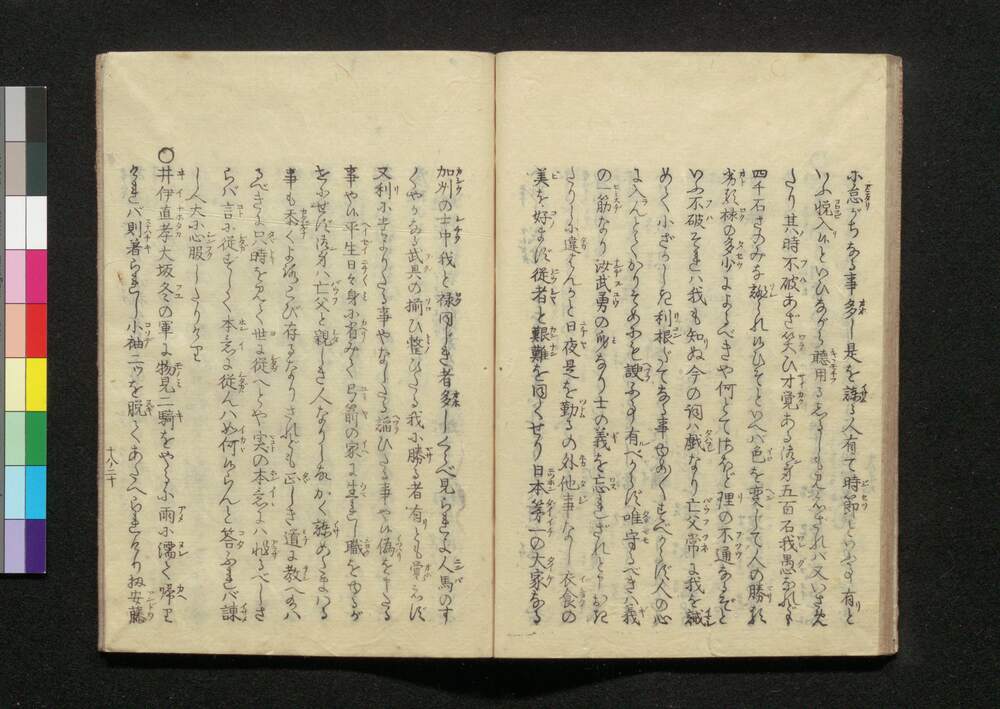 に怠がちなる事多し是を諫る人有て時節といふもの有と
いふ悦入候といひながら聴用るしるしも見えざれバ又いさめ
たり其時不破あざ笑ひ才覚ある汝ガ五百石我愚なれども
四千石さのみな類られひそといへバ色を変して人の勝劣
禄の多少によるべきや何とてはほど理の不通なるぞと
いふ不破それハ我も知ぬ今の詞ハ戯なり亡父常に我を誡
めらく小ざかしき利根ぶてなる事ゆめ〳〵すべからず人の心
に入んとてかりそめにも諛ふ事有べからず唯守るべきハ義
の一筋なり汝武勇の家なり士の義を忘れざれとしかれ
さらに違もんかと日夜是を勤るの外他事なし衣食の
美を好まず従者と艱難を同くせり日本第一の大家なる
加州の士中我と禄同じき者多しくらべ見られよ人馬のす
くやかなる武具の揃ひ整ひたる我に勝る者有とも覚えず
又利に走りたる事やなしたる諂ひたる事や候偽をしたる
事や候平生日々身に省みて弓箭の家に生まれし職をゆるか
せにせず汝ガ亡父と親しき人なりしが故かく諫めたまハる
事も忝くよろこび存るなりされども正しき道に教へ給ハ
るべきに只時を見て世に従へとや実の本意にハ非るべしさ
らバ言に従ずして本意に従んハいかが候らんと答ふれバ諫
し人大に心服したりけり
○井伊直孝大坂冬の軍に物見二騎をやる小雨に濡て帰り
ければ則着られし小袖二ツを脱てあたへられけり扨安藤
十八ノ二十